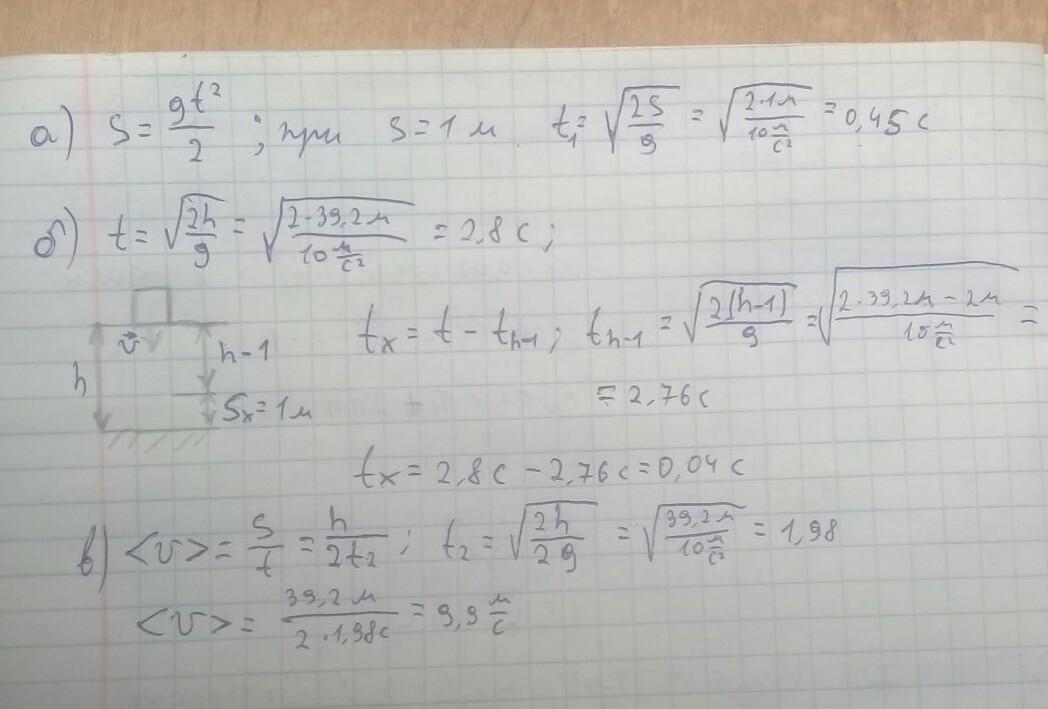 а) S = gt²/2 ; при S = 1 м t₁ = √(2S/g) = √(2·1м/10 м/с²) = 0,45 с
б) t = √(2h/g) = √(2·39,2 м/10 м/с²) = 2,8 с;
tₓ = t − tₕ₋₁ ; tₕ₋₁ = √(2(h−1)/g) = √(2·39,2м − 2м/10 м/с²) =
v⃗
h − 1
h
= 2,76 с
Sₓ = 1 м
tₓ = 2,8 с − 2,76 с = 0,04 с
в) <v> = S/t = h/2t₂ ; t₂ = √(2h/2g) = √(39,2 м/10 м/с²) = 1,98
<v> = 39,2 м/2·1,98с = 9,9 м/с